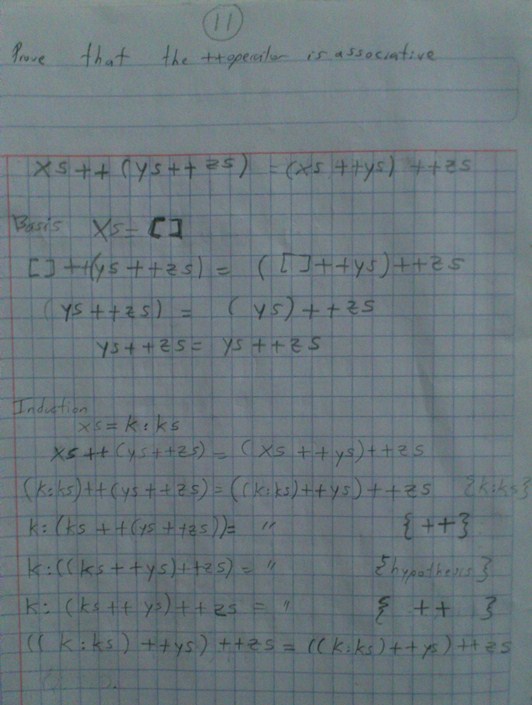 11
Prove that the ++operator is associative
xs++ (ys++zs) = (xs ++ys) ++zs
Basis xs= []
[]++(ys++zs) = ([]++ys)++zs
(ys++zs) = (ys)++zs
ys++zs= ys++zs
Induction
xs= k:ks
xs++(ys++zs)= (xs ++ys)++zs
(k:ks)++(ys++zs)=((k:ks)++ys)++zs {k:ks}
k:(ks++(ys++zs))= " {++}
k:((ks++ys)++zs)= " {hypothesis}
k: (ks++ ys)++zs = " { ++ }
((k:ks)++ys)++zs = ((k:ks)++ys)++zs